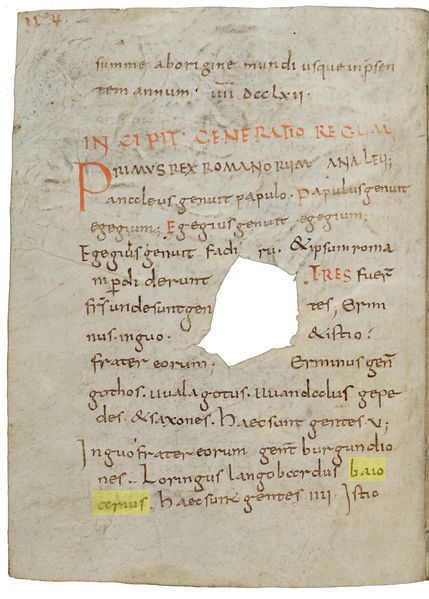 N. 4.
summe ab origine mundi usque in p̄sen
tem annum · ūīīī dcclxii ·
INCIPIT GENERATIO REGUM
PRIMUS REX ROMANORUM ANALEU;
Pancoleus genuit papulo. Papulus genuit
egegium; Egegius genuit egegium;
Egegiuſ genuit fadi ru · & ipsum roma
ni p̄di derunt TRES fuer̄
fr̄s unde sunt gen tes, Ermi
nus. inguo. & istio.
frater eorum; Erminus geñ
gothos. uualagotus. uuandolus gepe
des. & saxones. haec sunt gentes u;
Inguo frater eorum geñt burgundio
nes. Loringus langobardus baio
arius. haec sunt gentes iiii. Istio